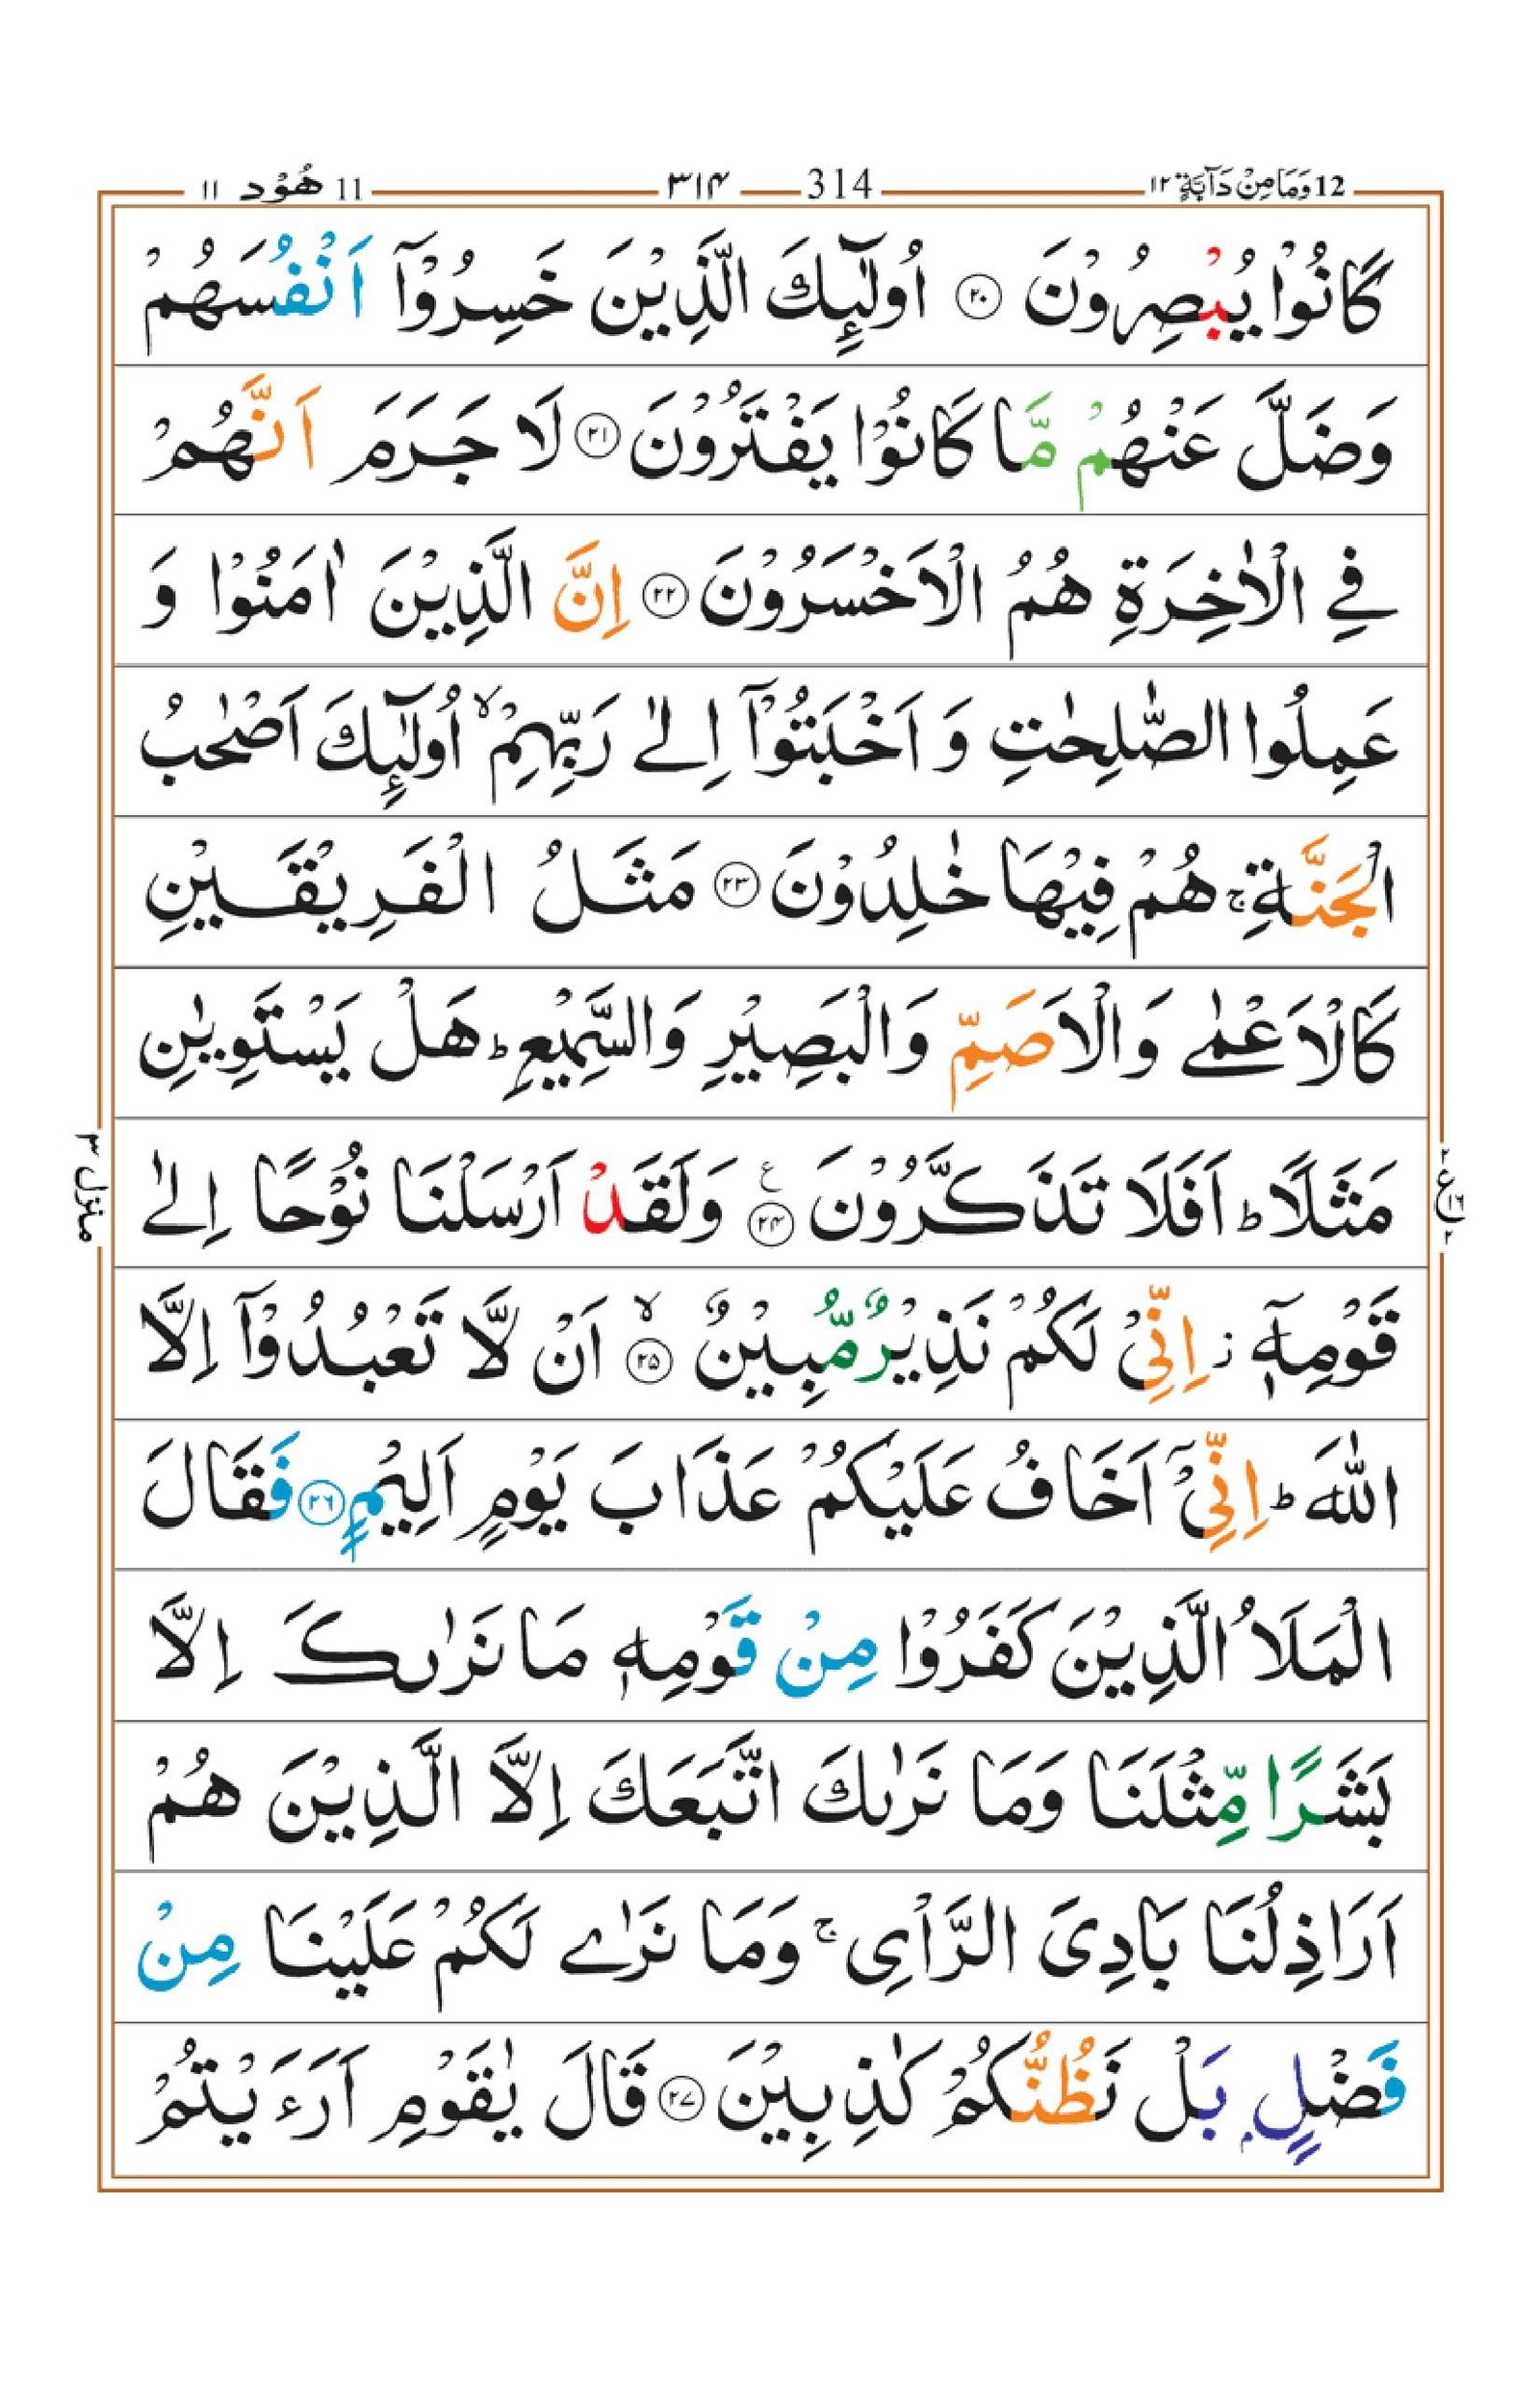 12 وَمَا مِنْ دَآبَّةٍ ١٢ 314 ٣١٤ 11 هُوْد ١١
كَانُوْا يُبْصِرُوْنَ ۝٢٠ اُولٰٓئِكَ الَّذِيْنَ خَسِرُوْٓا اَنْفُسَهُمْ
وَضَلَّ عَنْهُمْ مَّا كَانُوْا يَفْتَرُوْنَ ۝٢١ لَا جَرَمَ اَنَّهُمْ
فِي الْاٰخِرَةِ هُمُ الْاَخْسَرُوْنَ ۝٢٢ اِنَّ الَّذِيْنَ اٰمَنُوْا وَ
عَمِلُوا الصّٰلِحٰتِ وَ اَخْبَتُوْٓا اِلٰى رَبِّهِمْ ۙ اُولٰٓئِكَ اَصْحٰبُ
الْجَنَّةِ ۚ هُمْ فِيْهَا خٰلِدُوْنَ ۝٢٣ مَثَلُ الْفَرِيْقَيْنِ
كَالْاَعْمٰى وَالْاَصَمِّ وَالْبَصِيْرِ وَالسَّمِيْعِ ؕ هَلْ يَسْتَوِيٰنِ
مَثَلًا ؕ اَفَلَا تَذَكَّرُوْنَ ۝٢٤ ع وَلَقَدْ اَرْسَلْنَا نُوْحًا اِلٰى
قَوْمِهٖٓ ز اِنِّيْ لَكُمْ نَذِيْرٌ مُّبِيْنٌ ۙ۝٢٥ اَنْ لَّا تَعْبُدُوْٓا اِلَّا
اللّٰهَ ؕ اِنِّيْٓ اَخَافُ عَلَيْكُمْ عَذَابَ يَوْمٍ اَلِيْمٍ ۝٢٦ فَقَالَ
الْمَلَاُ الَّذِيْنَ كَفَرُوْا مِنْ قَوْمِهٖ مَا نَرٰىكَ اِلَّا
بَشَرًا مِّثْلَنَا وَمَا نَرٰىكَ اتَّبَعَكَ اِلَّا الَّذِيْنَ هُمْ
اَرَاذِلُنَا بَادِيَ الرَّاْيِ ۚ وَمَا نَرٰى لَكُمْ عَلَيْنَا مِنْ
فَضْلٍۭ بَلْ نَظُنُّكُمْ كٰذِبِيْنَ ۝٢٧ قَالَ يٰقَوْمِ اَرَءَيْتُمْ
منزل ٣
٢ ع ١٦ ٢